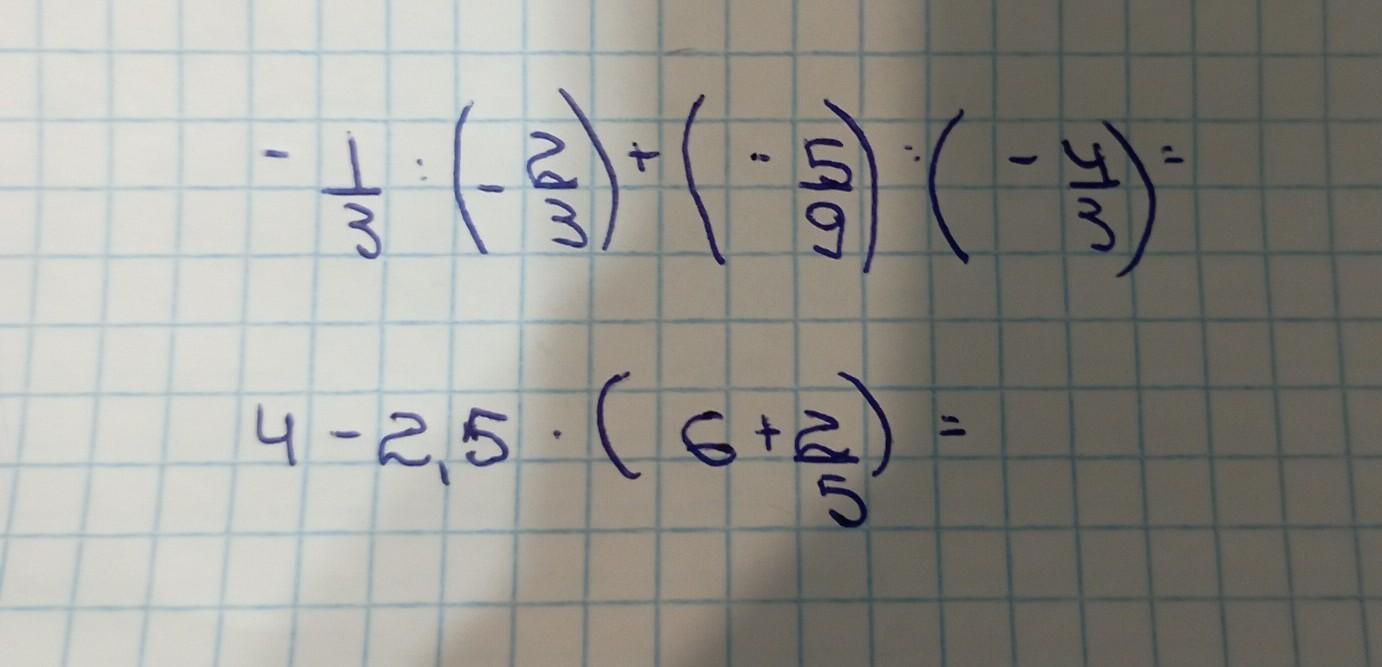 - 1/3 : (- 2/3) + (- 5/9) : (- 4/3) =
4 - 2,5 · (6 + 2/5) =